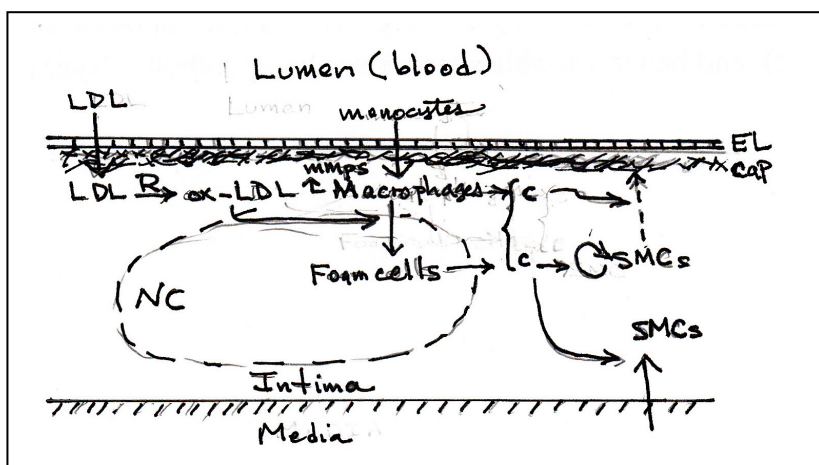 Lumen (blood)
LDL
monocytes
EL
cap
mmps
LDL R → ox-LDL ↑ Macrophages → { C
Foam cells → C → SMCs
NC
SMCs
Intima
Media